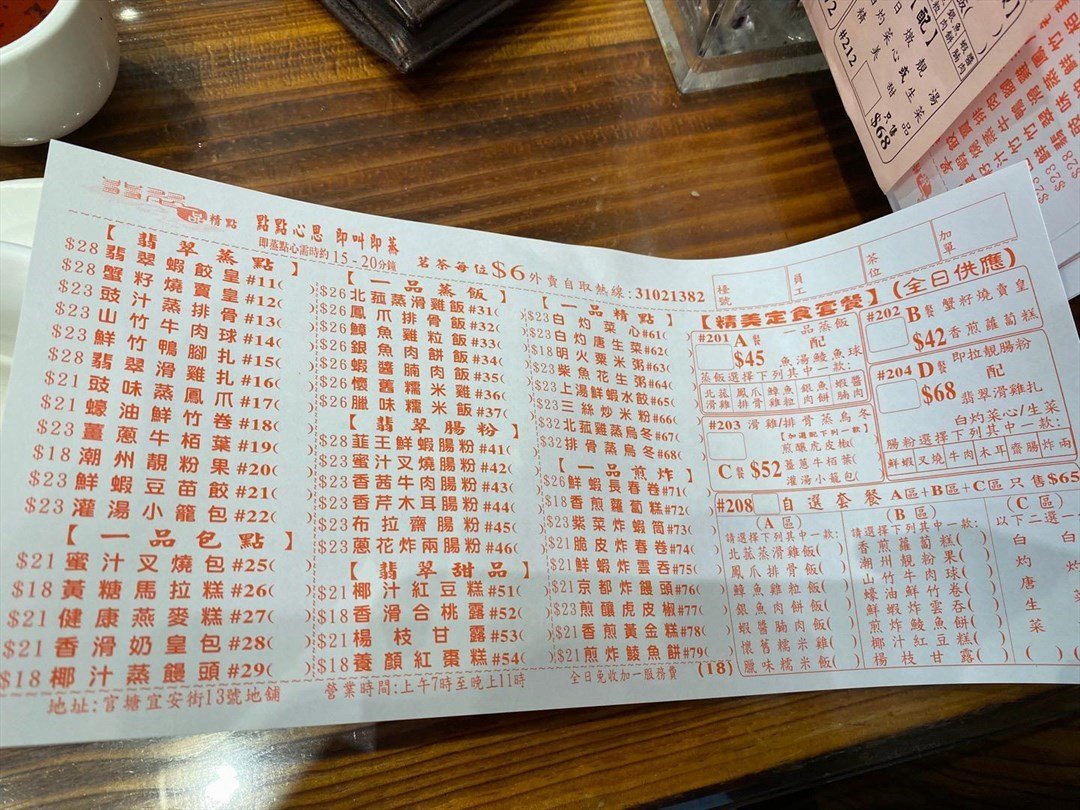 精點 點點心思 即叫即蒸
即蒸點心需時約15-20分鐘
茗茶每位$6
外賣自取熱線:31021382
檯號
員工
茶位
加單
【翡翠蒸點】
$28 翡翠蝦餃皇 #11( )
$28 蟹籽燒賣皇 #12( )
$23 豉汁蒸排骨 #13( )
$23 山竹牛肉球 #14( )
$23 鮮竹鴨腳扎 #15( )
$28 翡翠滑雞扎 #16( )
$21 豉味蒸鳳爪 #17( )
$21 蠔油鮮竹卷 #18( )
$23 薑蔥牛栢葉 #19( )
$18 潮州靚粉果 #20( )
$23 鮮蝦豆苗餃 #21( )
$23 灌湯小籠包 #22( )
【一品包點】
$21 蜜汁叉燒包 #25( )
$18 黃糖馬拉糕 #26( )
$21 健康燕麥糕 #27( )
$21 香滑奶皇包 #28( )
$18 椰汁蒸饅頭 #29( )
【一品蒸飯】
$26 北菰蒸滑雞飯 #31( )
$26 鳳爪排骨飯 #32( )
$26 鱆魚雞粒飯 #33( )
$26 銀魚肉餅飯 #34( )
$26 蝦醬腩肉飯 #35( )
$26 懷舊糯米雞 #36( )
$26 臘味糯米飯 #37( )
【翡翠腸粉】
$28 韮王鮮蝦腸粉 #41( )
$23 蜜汁叉燒腸粉 #42( )
$23 香茜牛肉腸粉 #43( )
$23 香芹木耳腸粉 #44( )
$23 布拉齋腸粉 #45( )
$23 蔥花炸兩腸粉 #46( )
【翡翠甜品】
$21 椰汁紅豆糕 #51( )
$18 香滑合桃露 #52( )
$21 楊枝甘露 #53( )
$18 養顏紅棗糕 #54( )
【一品精點】
$23 白灼菜心 #61( )
$23 白灼唐生菜 #62( )
$18 明火粟米粥 #63( )
$23 柴魚花生粥 #64( )
$23 上湯鮮蝦水餃 #65( )
$23 三絲炒米粉 #66( )
$32 北菰雞蒸烏冬 #67( )
$32 排骨蒸烏冬 #68( )
【一品煎炸】
$26 鮮蝦長春卷 #71( )
$18 香煎蘿蔔糕 #72( )
$23 紫菜炸蝦筒 #73( )
$21 脆皮炸春卷 #74( )
$21 鮮蝦炸雲吞 #75( )
$21 京都炸饅頭 #76( )
$23 煎釀虎皮椒 #77( )
$21 香煎黃金糕 #78( )
$21 煎炸鯪魚餅 #79( )
【精美定食套餐】(全日供應)
#201 A餐 $45
一品蒸飯
配
魚湯鯪魚球
蒸飯選擇下列其中一款:
北菰滑雞 鳳爪排骨 鱆魚雞粒 銀魚肉餅 蝦醬腩肉
#202 B餐 $42
蟹籽燒賣皇
香煎蘿蔔糕
#203 C餐 $52
滑雞/排骨蒸烏冬
【加選配下列一款】
煎釀虎皮椒( )
薑蔥牛栢葉( )
灌湯小籠包( )
#204 D餐 $68
即拉靚腸粉
配
翡翠滑雞扎
白灼菜心/生菜
腸粉選擇下列其中一款:
鮮蝦 叉燒 牛肉 木耳 齋腸 炸兩
#208 自選套餐 A區+B區+C區只售$65
(A區)
請選擇下列其中一款:
北菰蒸滑雞飯( )
鳳爪排骨飯( )
鱆魚雞粒飯( )
銀魚肉餅飯( )
蝦醬腩肉飯( )
懷舊糯米雞( )
臘味糯米飯( )
(B區)
請選擇下列其中一款:
香煎蘿蔔糕( )
潮州粉果( )
山竹牛肉球( )
蠔油鮮竹卷( )
鮮蝦炸雲吞( )
煎炸鯪魚餅( )
椰汁紅豆糕( )
楊枝甘露( )
(C區)
以下二選一
白灼唐生菜( )
白灼菜
地址:官塘宜安街13號地舖
營業時間:上午7時至晚上11時
全日免收加一服務費
(18)
#212
$68